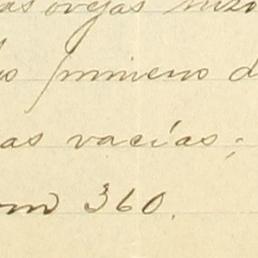 as ovejas hizo
primero d
as vacías;
360.